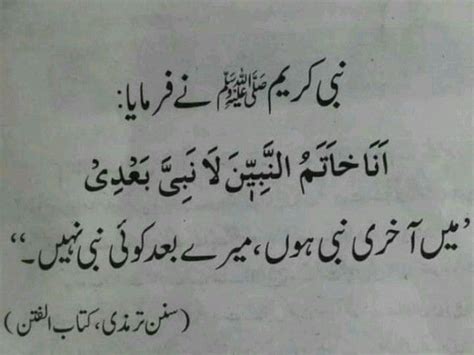 نبی کریم ﷺ نے فرمایا:
اَنَا خَاتَمُ النَّبِیّٖنَ لَا نَبِیَّ بَعْدِیْ
’میں آخری نبی ہوں، میرے بعد کوئی نبی نہیں۔‘‘
(سنن ترمذی، کتاب الفتن)